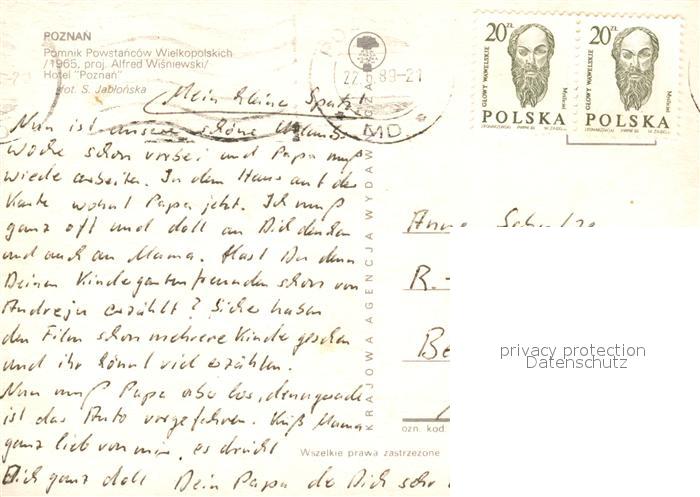 POZNAŃ
Pomnik Powstańców Wielkopolskich
/1965, proj. Alfred Wiśniewski/
Hotel "Poznań"
fot. S. Jabłońska
Mein kleiner Spatz!
Nun ist unsere schöne Urlaubs-
woche schon vorbei und Papa muß
wieder arbeiten. In dem Haus auf der
Karte wohnt Papa jetzt. Ich muß
ganz oft und doll an Dich denken
und auch an Mama. Hast Du denn
Deinen Kindergartenfreunden schon von
Andrzeju erzählt? Sicher haben
den Film schon mehrere Kinder gesehen
und ihr könnt viel erzählen.
Nun muß Papa aber los, denn gerade
ist das Auto vorgefahren. Küß Mama
ganz lieb von mir, es drückt
Dich ganz doll Dein Papa der Dich sehr
KRAJOWA AGENCJA WYDAW
22 89-21
MD.
20 ZŁ
GŁOWY WAWELSKIE
POLSKA
20 ZŁ
GŁOWY WAWELSKIE
POLSKA
R.-
Be
ozn. kod.
Wszelkie prawa zastrzeżone
privacy protection
Datenschutz